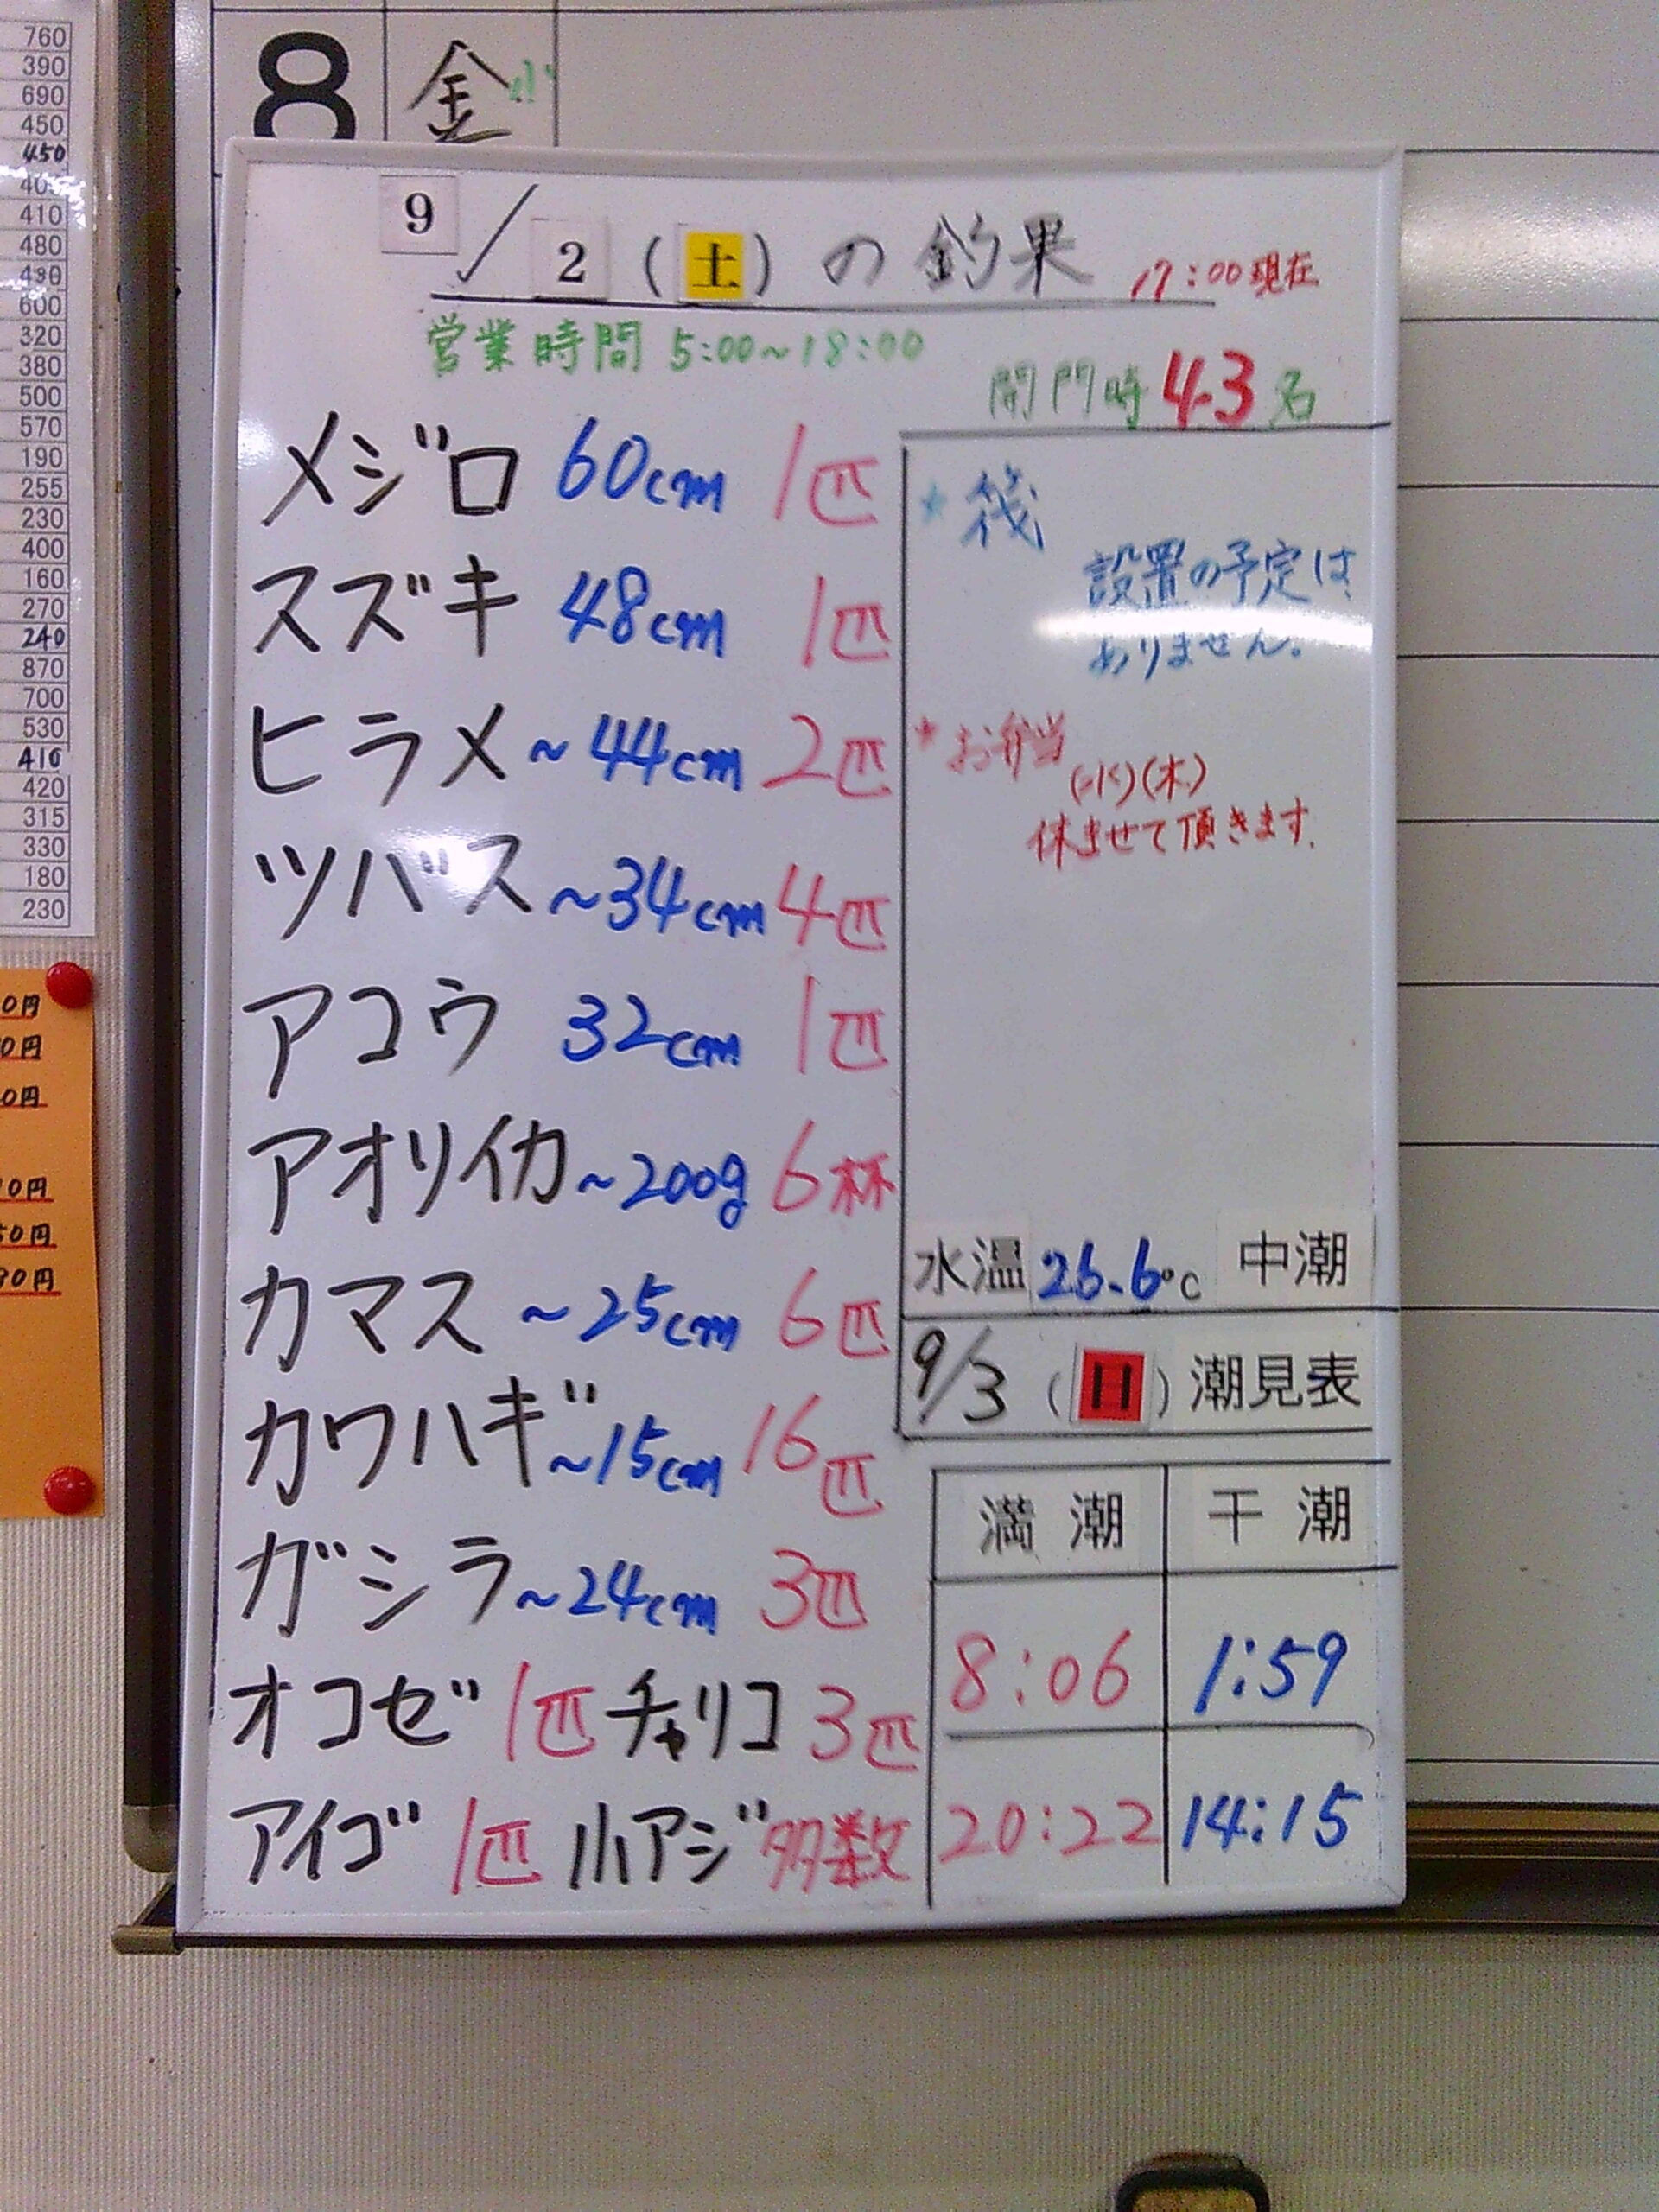 760
390
690
450
450
410
480
490
600
320
380
500
570
190
255
230
400
160
270
240
870
700
530
410
420
315
330
180
230
0円
0円
0円
0円
50円
90円
8 金 小
9/2(土)の釣果 17:00現在
営業時間 5:00~18:00
開門時 43名
メジロ 60cm 1匹
スズキ 48cm 1匹
ヒラメ ~44cm 2匹
ツバス ~34cm 4匹
アコウ 32cm 1匹
アオリイカ ~200g 6杯
カマス ~25cm 6匹
カワハギ ~15cm 16匹
ガシラ ~24cm 3匹
オコゼ 1匹 チャリコ 3匹
アイゴ 1匹 小アジ 多数
★筏
設置の予定は
ありません。
★お弁当
(水)(木)
休ませて頂きます.
水温 26.6℃ 中潮
9/3(日)潮見表
満潮 干潮
8:06 1:59
20:22 14:15